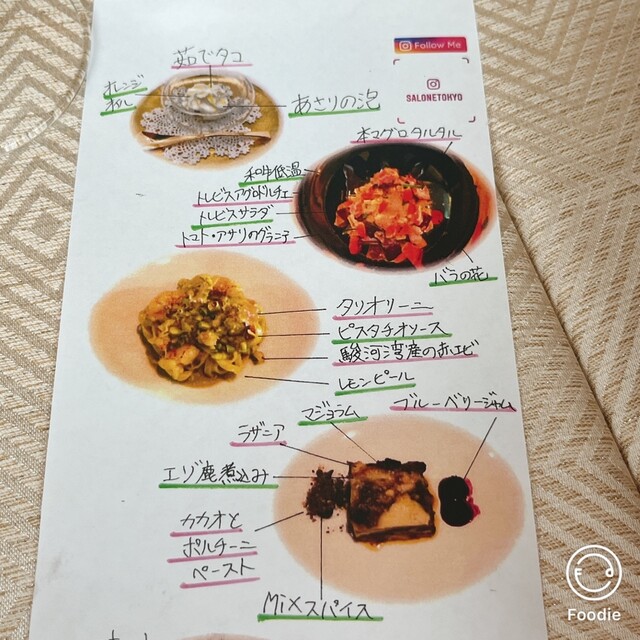 茹でタコ
Follow Me
SALONETOKYO
オレンジ
オイル
あさりの泡
本マグロタルタル
和牛低温
トレビスアグロドルチェ
トレビスサラダ
トマト・アサリのグラニテ
バラの花
タリオリーニ
ピスタチオソース
駿河湾産の赤エビ
レモンピール
マジョラム
ブルーベリージャム
ラザニア
エゾ鹿煮込み
カカオと
ポルチーニ
ペースト
Mixスパイス
Foodie